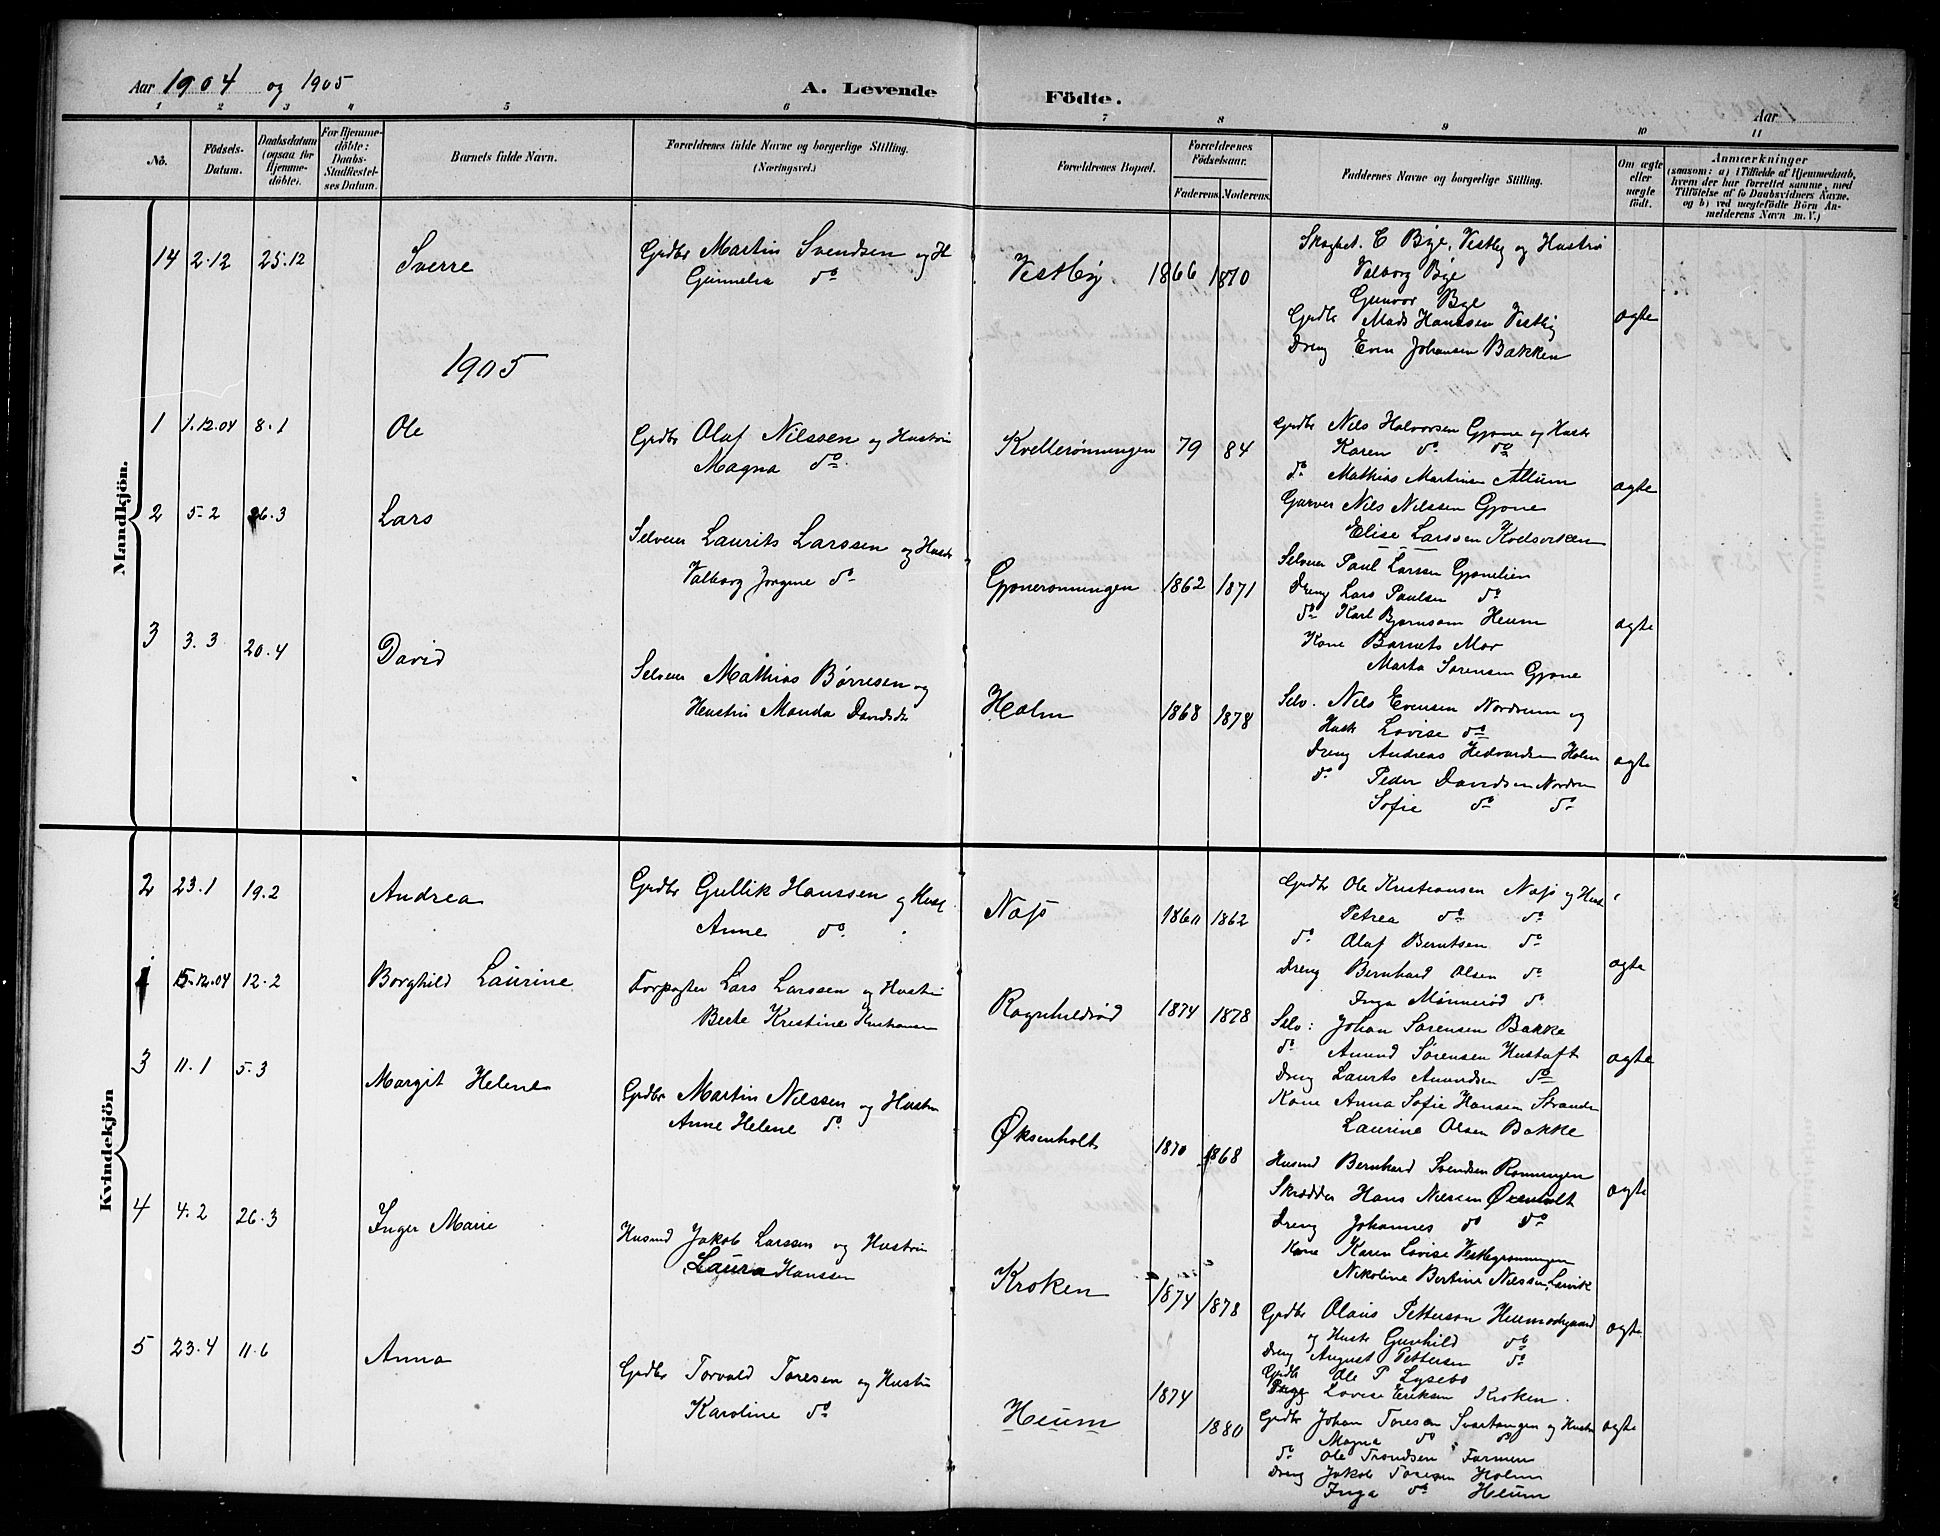 Aar 1904 og 1905
A. Levende Födte.
Aar
1 2 3 4 5 6 7 8 9 10 11
No.
Födsels-Datum.
Daabsdatum (ogsaa for Hjemme-döbte).
For Hjemme-döbte: Daabs-Stadfæstel-ses Datum.
Barnets fulde Navn.
Forældrenes fulde Navne og borgerlige Stilling.
(Næringsvei.)
Forældrenes Bopæl.
Forældrenes Födselsaar.
Faderens. Moderens.
Faddernes Navne og borgerlige Stilling.
Om ægte eller uægte födt.
Anmærkninger
(saasom: a) i Tilfælde af Hjemmedaab, hvem der har forrettet samme, med Tilföielse af to Daabsvidners Navne. og b) ved uægtefödte Börn An-melderens Navn m. V.)
Mandkjön.
14 2.12 25.12 Sverre
Grdbr Martin Svendsen og H
Gunnelia do
Vestby 1866 1870
Skogbet. C Bye, Vestby og Hustru
Valborg Bye
Gunvor Bye
Grdbr Mads Hanssen Vestby
Dreng Even Johansen Bakken
ægte
1905
1 1.12.04 8.1 Ole
Grdbr Olaf Nilssen og Hustru
Magna do
Kvellerønningen 79 84
Grdbr Nils Halvorsen Gjone og Hustr
Karen do do
do Mathias Martinsen Allum
Garver Nils Nilssen Gjone
Elise Larssen Kvelsviken
ægte
2 5.2 26.3 Lars
Selveier Laurits Larssen og Hustr
Valborg Jørgine do
Gjonerønningen 1862 1871
Selveier Paul Larsen Gjonelien
Dreng Lars Paulsen do
do Karl Bjørnsson Heum
Kone Barnets Mor
Marta Sørensen Gjone
ægte
3 3.3 20.4 David
Selveier Mathias Børresen og
Hustru Manda Davidsdr
Holm 1868 1878
Selv. Nils Evensen Nordrum og
Hustr Lovise do
Dreng Andreas Hedvardsen Holm
do Peder Davidsen Nordrum
Sofie do do
ægte
Kvindekjön
2 23.1 19.2 Andrea
Grdbr Gullik Hanssen og Hust
Anne do
Næss 1860 1862
Grdbr Ole Kristiansen Næss og Hustr
Petrea do do
do Olaf Berntsen do
Dreng Bernhard Olsen do
Inga Mønnerød do
ægte
1 15.12.04 12.2 Borghild Laurine
Forpagter Lars Larssen og Hustru
Berte Kristine Kristiansen
Ragnhildrød 1874 1878
Selv: Johan Sørensen Bakke
do Amund Sørensen Hustoft
Dreng Laurits Amundsen do
Kone Anna Sofie Hansen Stranda
Laurine Olsen Bakke
ægte
3 11.1 5.3 Margit Helene
Grdbr Martin Nilssen og Hustru
Anne Helene do
Øksenholt 1870 1868
Husmd Bernhard Svendsen Rønningen
Skrædder Hans Nilssen Øksenholt
Dreng Johannes do do
Kone Karen Lovise Vestbyrønningen
Nikoline Bertine Nilssen, Larvik
ægte
4 4.2 26.3 Inger Marie
Husmd Jakob Larssen og Hustru
Laura Hanssen
Kroken 1874 1878
Grdbr Olaus Pettersen Heumødegaard
og Hustr Gunhild do
Dreng August Pettersen do
Grdbr Ole P Lysebo
Pige Lovise Eriksen Kroken.
ægte
5 23.4 11.6 Anna
Grdbr Torvald Toresen og Hustru
Karoline do
Heum 1874 1880
Grdbr Johan Toresen Svartangen og Hustru
Magna do do
do Ole Trondsen Farmen
Dreng Jakob Toresen Holm
Inga do Heum
ægte